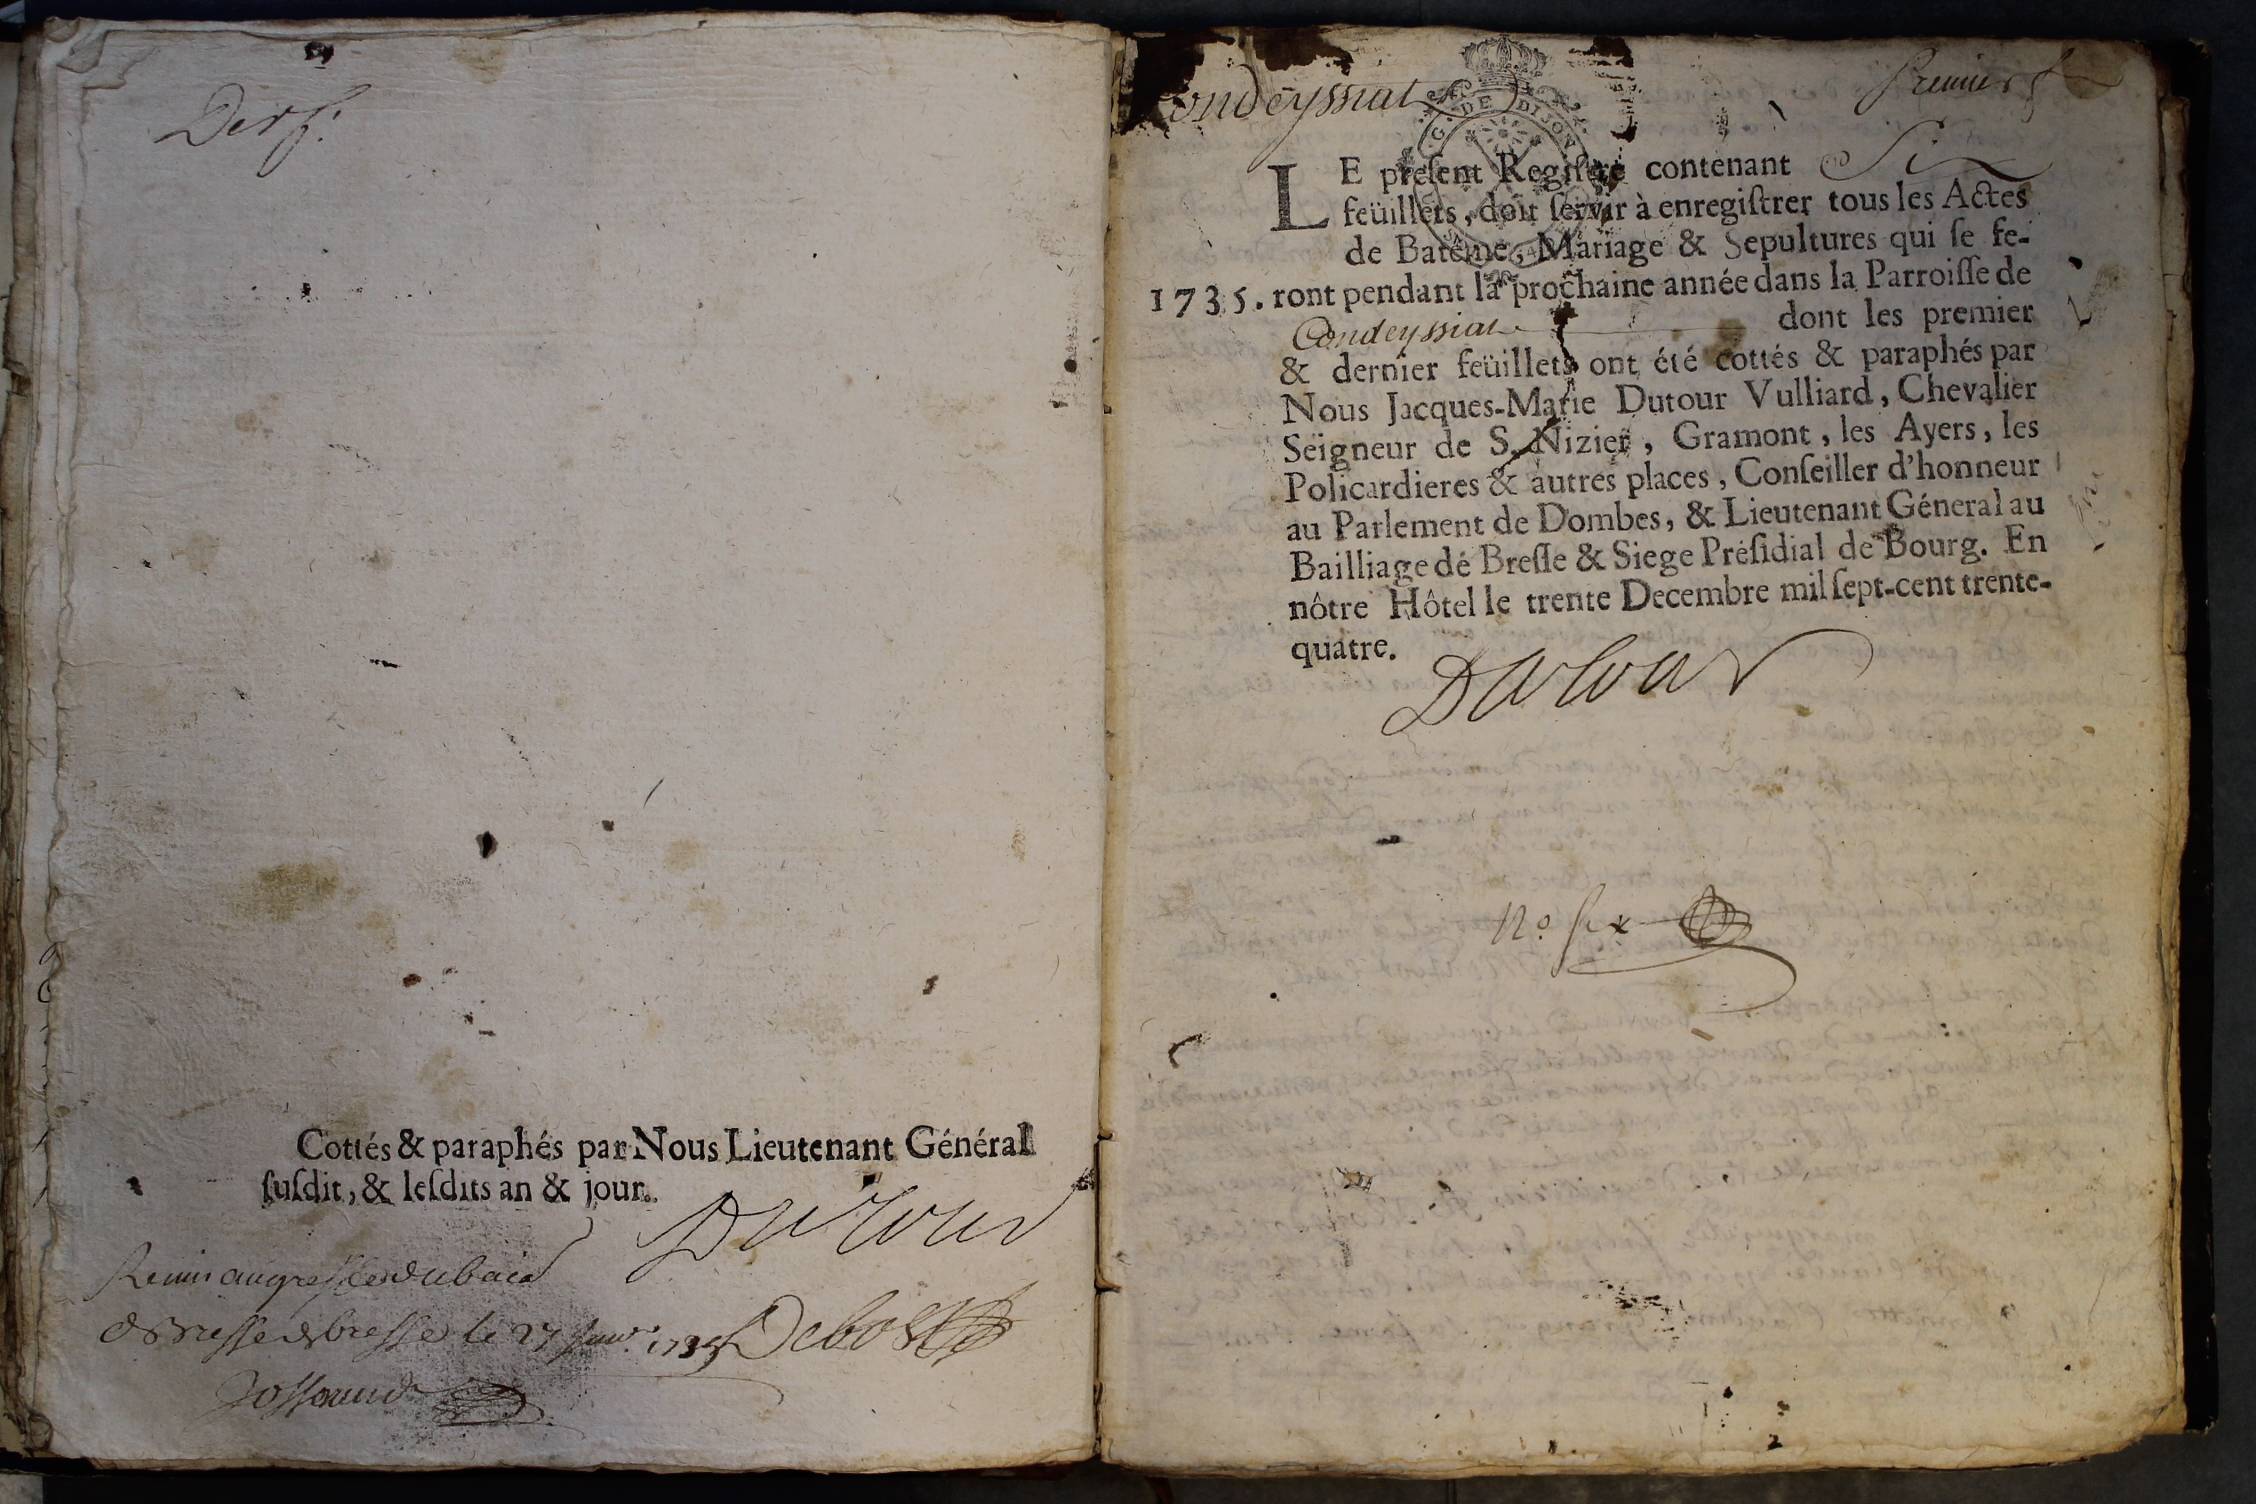 Der f.
Cottés & paraphés par Nous Lieutenant Général
ſuſdit, & leſdits an & jour.
Dutour
Remis au greffe du baill
de bresse le 27 janv. 1735
Condeyssiat
Premier f
G. DE DIJON
LE preſent Regiſtre contenant Six
feüillets, doit ſervir à enregiſtrer tous les Actes
de Batême, Mariage & Sepultures qui ſe fe-
1735. ront pendant la prochaine année dans la Parroiſſe de
Condeyssiat dont les premier
& dernier feüillets ont été cottés & paraphés par
Nous Jacques-Marie Dutour Vulliard, Chevalier
Seigneur de S. Nizier, Gramont, les Ayers, les
Policardieres & autres places, Conſeiller d'honneur
au Parlement de Dombes, & Lieutenant Géneral au
Bailliage dé Breſſe & Siege Préſidial de Bourg. En
nôtre Hôtel le trente Decembre mil ſept-cent trente-
quatre.
Dutour
No. six